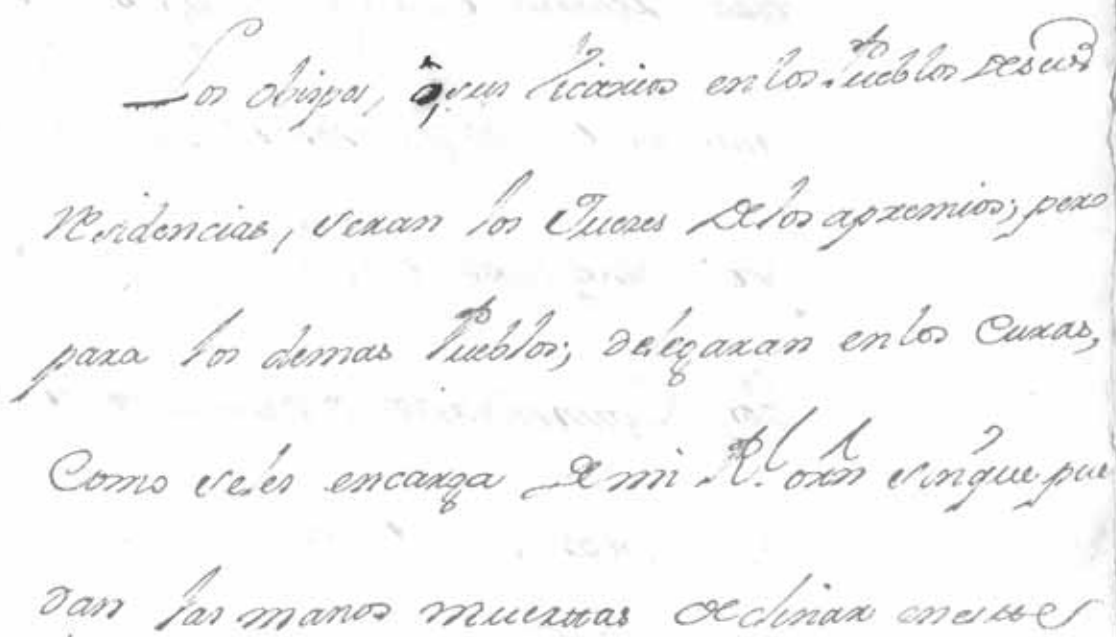 Los obispos, ô sus Vicarios en los Pueblos de sus
Residencias, seran los Jueces de los apremios; pero
para los demas Pueblos; delegaran en los Curas,
Como se les encarga de mi R.l orn sin que pue
dan las manos muertas declinar en esse